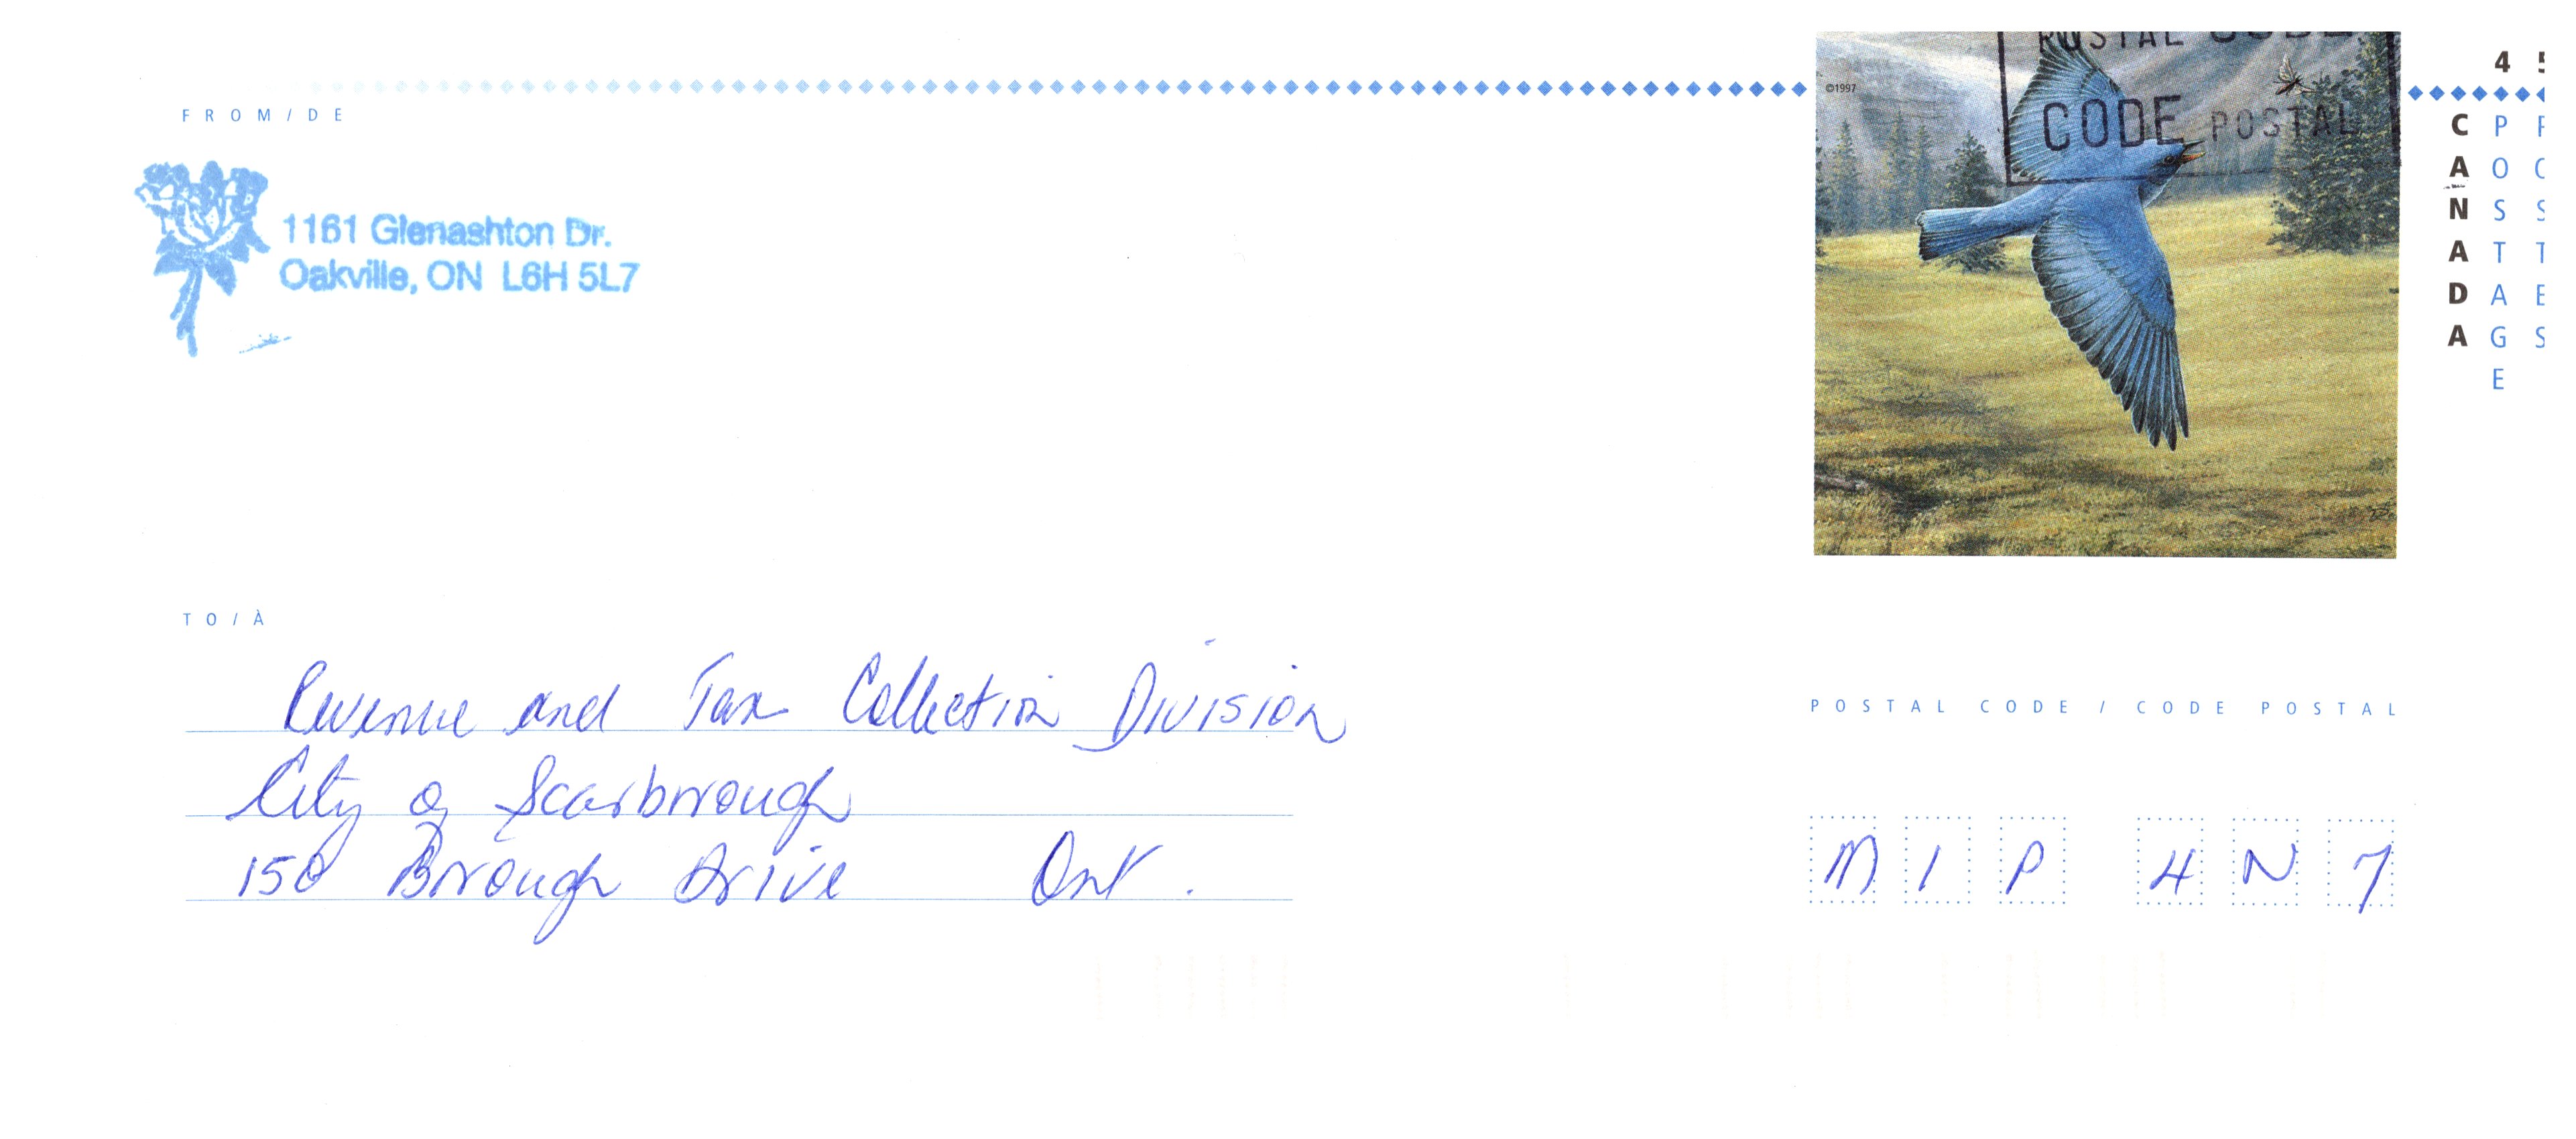 FROM/DE
1161 Glenashton Dr.
Oakville, ON L6H 5L7
©1997
POSTAL CODE
CODE POSTAL
45
CANADA
POSTAGE
POSTES
TO/À
Revenue and Tax Collection Division
City of Scarborough
150 Borough Drive Ont.
POSTAL CODE / CODE POSTAL
M1P 4N7